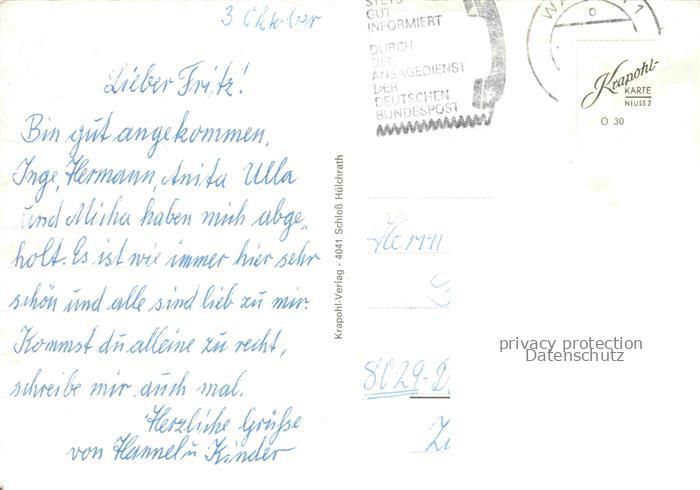 3. Oktober
Lieber Fritz!
Bin gut angekommen,
Inge, Hermann, Anita Ulla
und Micha haben mich abge-
holt. Es ist wie immer hier sehr
schön und alle sind lieb zu mir.
Kommst du alleine zu recht,
schreibe mir auch mal.
Herzliche Grüße
von Hannel u Kinder
Krapohl-Verlag - 4041 Schloß Hülchrath
STETS
GUT
INFORMIERT
DURCH
DEN
ANSAGEDIENST
DER
DEUTSCHEN
BUNDESPOST
Krapohl-
KARTE
NEUSS 2
O 30
Herrn
8029-D
privacy protection
Datenschutz